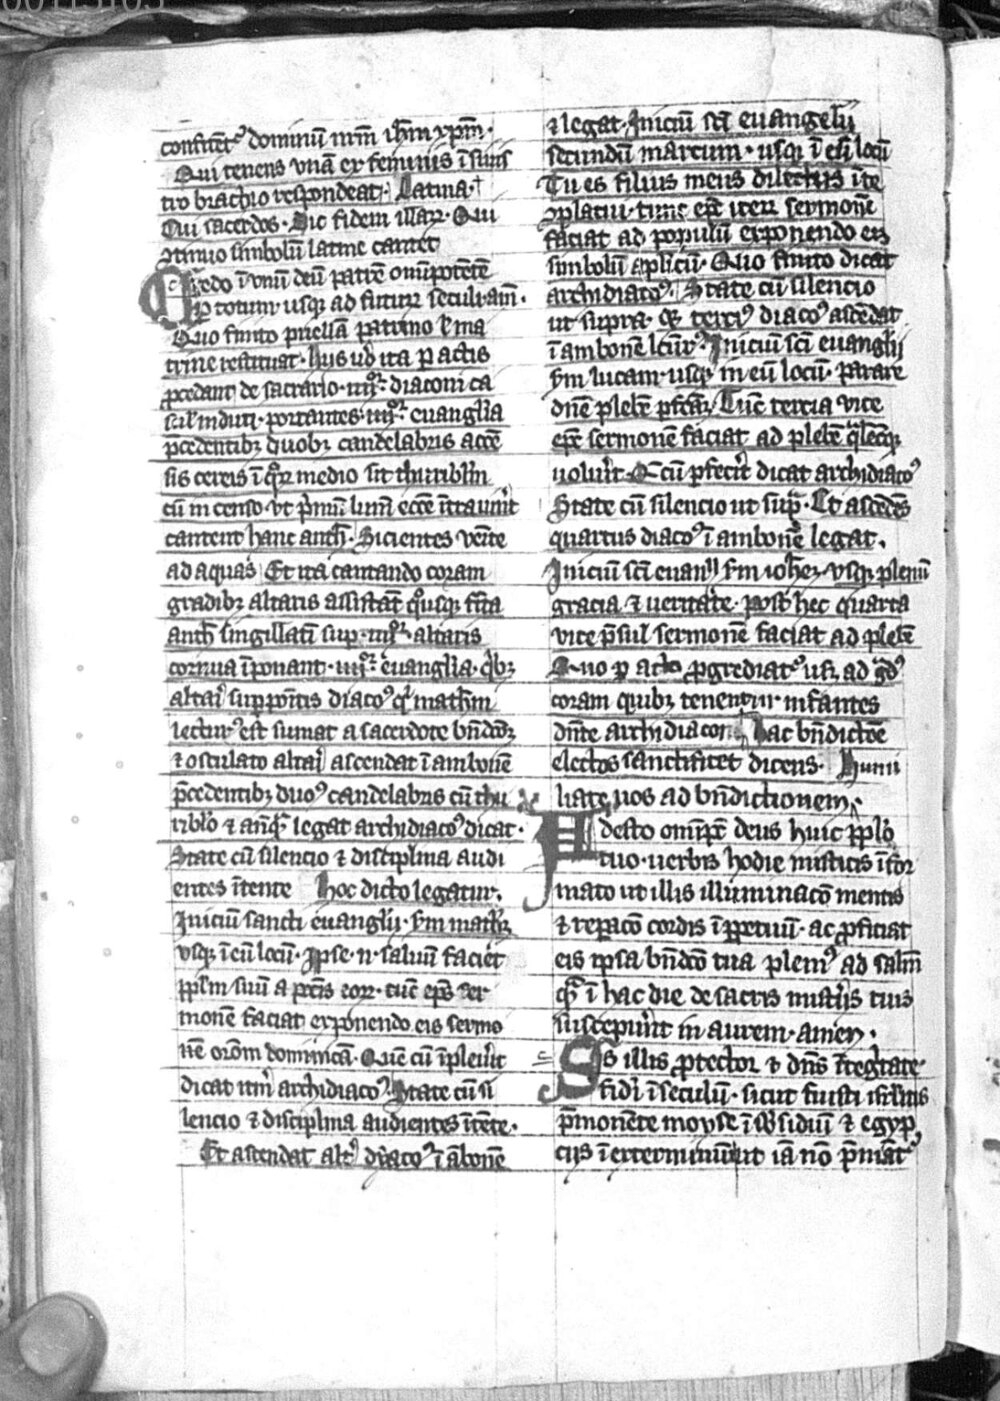 confitet᷒ dominū nr̄m ih̄m xp̄m.
Qui tenens vnā ex feminis ī sinis
tro brachio respondeat. Latina.
Cui sacerdos. Dic fidem illaꝝ. Qui
ꝯtinuo simbolū latine cantet
Credo ī vnū deū patrē om̄potētē
ꝑ totum. usqꝫ ad futuri seculi. am̄.
Quo finito puellā patrino ł ma
trine restituat. Hiis v̓o ita ꝑactis
ꝓcedant de sacrario. iiijᵒʳ. diaconi ca
sul̓ induti. portantes. iiijᵒʳ. euanglia
p̄cedentibꝫ duobꝫ candelabris accē
sis cereis ī qᵒꝝ medio sit thuriblm̄
cū incenso. vt pⁱmū limē ecc̄e īntrauer̓it
cantent hanc anth̄. Sicientes venite
ad aquas Et ita cantando coram
gradibꝫ altaris assistāt qᵒusqꝫ finita
anth̄ singillatī sup. iiijᵒʳ. altaris
cornua īponant. iiijᵒʳ. euanglia. qⁱbꝫ
altari suppoītis diaco᷒ qⁱ math̄m
lectur᷒ est sumat a sacerdote bn̄dcōꝫ
⁊ osculato altari ascendat ī ambonē
p̄cedentibꝫ duo᷒ candelabris cū thu
riblo ⁊ anͣqͣ legat archidiaco᷒ dicat.
State cū silencio ⁊ disciplina audi
entes ītente Hoc dicto legatur.
Inicium sancti euanglij. sm̄ math̄ꝫ
vsqꝫ ī eū locū. Ipse. n. saluū faciet
pplm̄ suū a pctīs eoꝝ. tūc ep̄s ser
monē faciat exponendo eis sermo
nē or̄om dominicā. Quē cū īpleuer̓it
dicat itm̄ archidiaco᷒. State cū si
lencio ⁊ disciplina audientes ītēte.
Et ascendat alt᷒ dyaco᷒ ī ābonē
⁊ legat. Iniciū sc̄i euangelij
secundū marcum. usqꝫ ī eū locū
Tu es filius meus dilectus ī te
ꝯplacui. tunc ep̄c iteꝝ sermonē
faciat ad populū exponendo eis
simbolū aplicū. Quo finito dicat
archidiaco᷒. State cū silencio
ut supra. ⁊ terci᷒ diaco᷒ ascēdat
ī ambonē lectur᷒. Iniciū sc̄i euanglij
sm̄ lucam. usqꝫ in eū locū. parare
dn̄e plebē pfectā. Tūc tercia vice
ep̄c sermonē faciat ad plebē qͣlēcqꝫ
uoluer̓it. Q cū pfecer̓it dicat archidiaco᷒
State cū silencio ut supͣ. Et ascēdēs
quartus diaco᷒ ī ambonē legat.
Iniciū sc̄i euanłł sm̄ ioh̄eꝫ. vsqꝫ plenū
gracia ⁊ ueritate. post hec quarta
vice p̄sul sermonē faciat ad plebē
Quo ꝑacto ꝓgrediat᷒ usqꝫ ad gͣd᷒
coram quibꝫ tenentur infantes
dn̄te archidiacono Hac bn̄dictōe
electos sanctificet dicens. Humi
liate uos ad bn̄dictionem.
Adesto om̄pc̄ deus huic pplo
tuo. uerbis hodie misticis īfor
mato ut illis illuminacō mentis
⁊ repacō cordis ī ppetuū. ac ꝓficiat
eis ipsa bn̄dcō tua plenius ad salm̄
qͣ ī hac die de sacris mistⁱis tuis
susceper̓unt in aurem. amen.
Sis illis ꝓtector ⁊ dn̄s ītegͥtate
fidei ī seculū. sicut fuisti isrl̄itis
p̄monēte moyse ī sb̓sidiū ⁊ egyp
ciis ī exterminiū ut iā nō p̄mat᷒